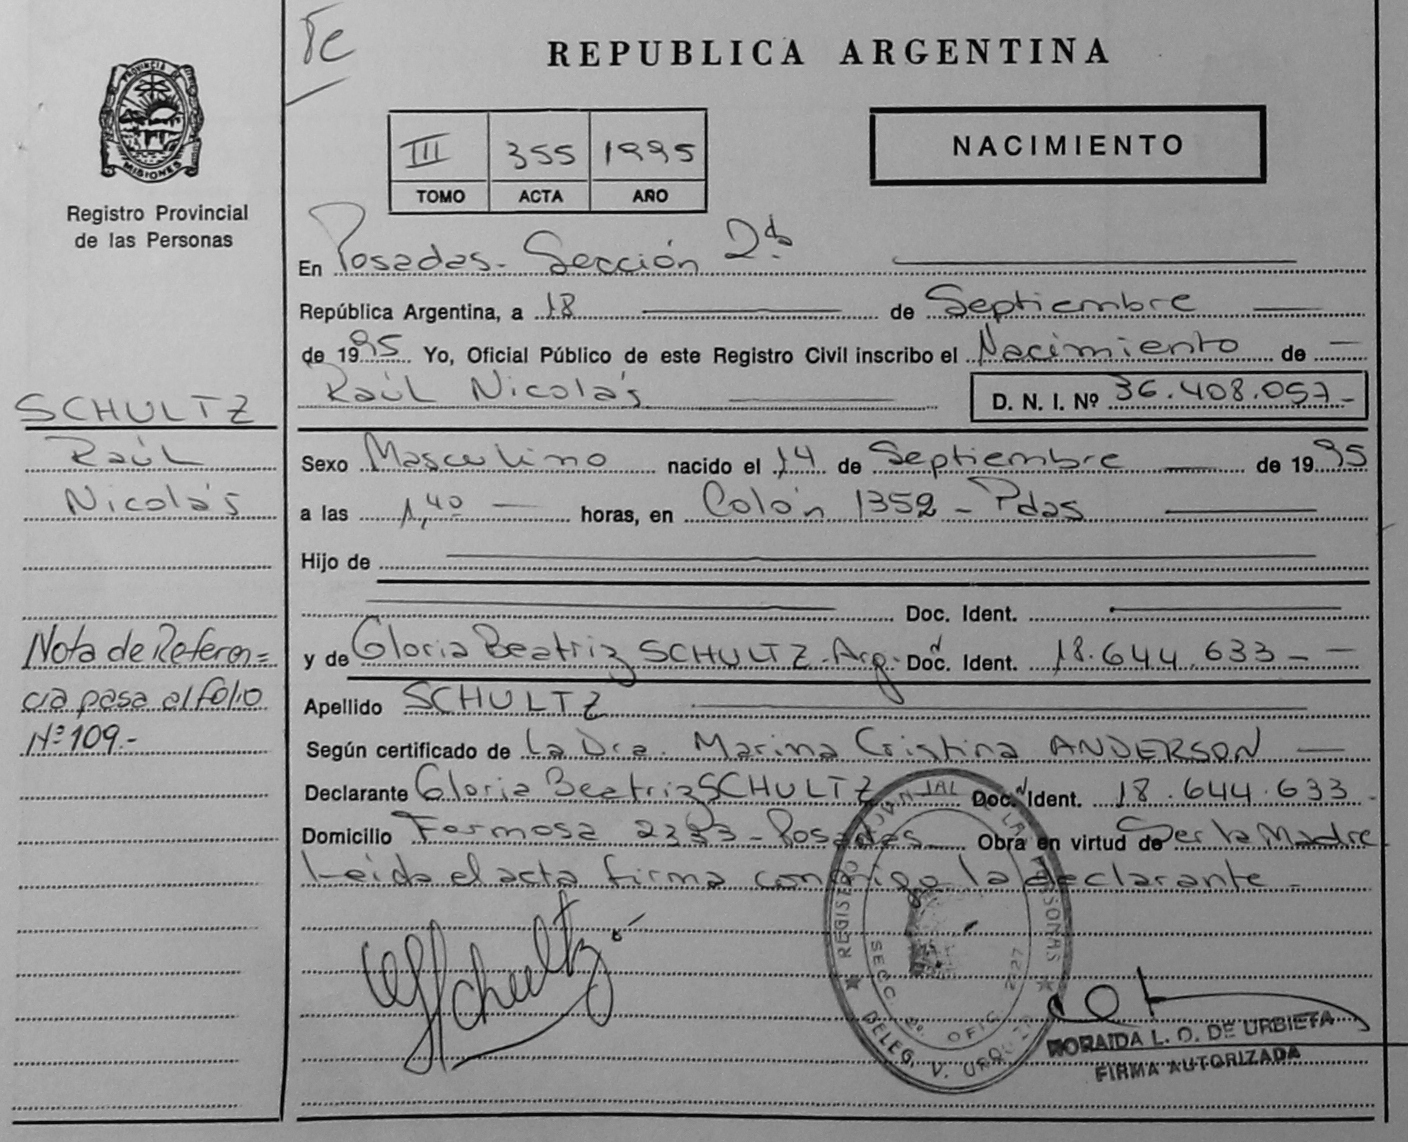 REPUBLICA ARGENTINA
PROVINCIA DE
MISIONES
Registro Provincial
de las Personas
III 355 1995
TOMO ACTA AÑO
NACIMIENTO
En Posadas. Sección 2da
República Argentina, a 18 de Septiembre
de 1995 Yo, Oficial Público de este Registro Civil inscribo el Nacimiento de
Raúl Nicolás D. N. I. Nº 36.408.057_
SCHULTZ
Raúl
Nicolás
Sexo Masculino nacido el 14 de Septiembre de 1995
a las 1,40 horas, en Colón 1352 - Pdas
Hijo de
Doc. Ident.
y de Gloria Beatriz SCHULTZ - Arg. Doc. Ident. 18.644.633 - -
Nota de Referen=
cia pasa al folio
Nº 109.-
Apellido SCHULTZ
Según certificado de La Dra. Marina Cristina ANDERSON
Declarante Gloria Beatriz SCHULTZ Doc. Ident. 18.644.633.
Domicilio Formosa - Posadas Obra en virtud de Ser la Madre
Leida el acta firma conmigo la declarante -
Schultz
REGISTRO PROVINCIAL DE LAS PERSONAS
SECC. 2º. OFIC. 2127
DELEG. V. URQUIZA
NORAIDA L. O. DE URBIETA
FIRMA AUTORIZADA